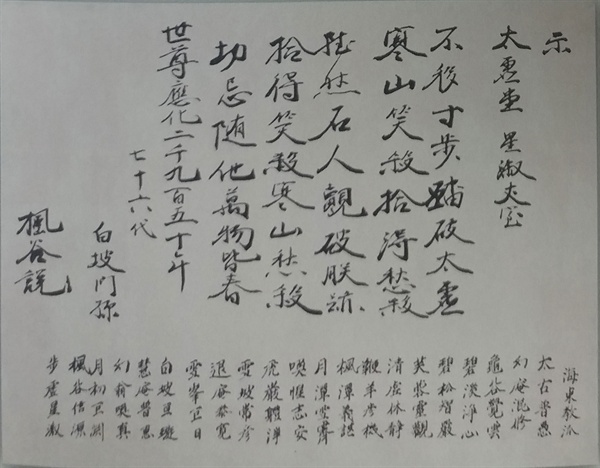 示
太虛堂 星淑丈室
不移寸步踏破太虛
寒山笑殺拾得愁殺
驀然石人覷破朕跡
拾得笑殺寒山愁殺
切忌随他萬物皆春
世尊應化二千九百五十年
七十六代
白坡門孫
楓谷說
海東教派
太古普愚
幻庵混修
龜谷覺雲
碧溪淨心
碧松智嚴
芙蓉靈觀
清虛休靜
鞭羊彦機
楓潭義諶
月潭雪霽
喚惺志安
虎巖體淨
雪坡常彦
退庵泰寬
雪峯巨日
白坡亘璇
慧庵普恩
幻翁喚真
月初巨淵
楓谷信源
步虛星淑